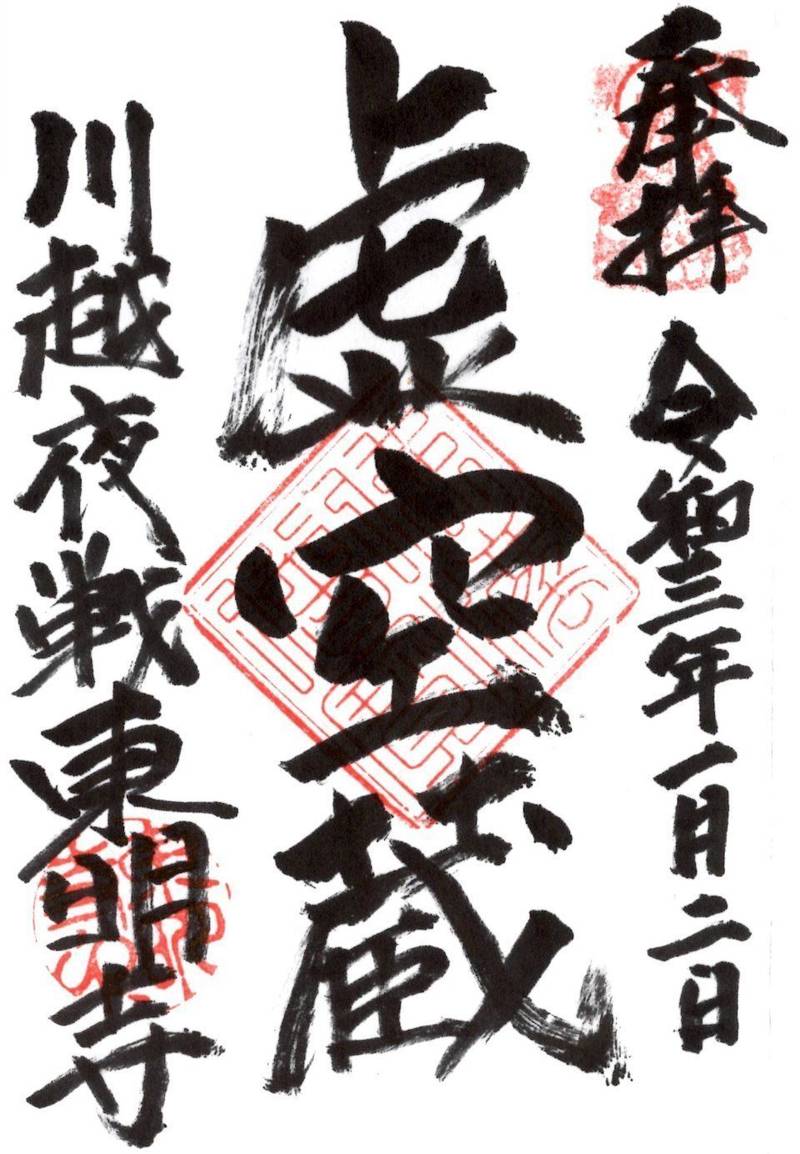 奉拝
令和三年一月二日
虚空蔵
川越夜戦東明寺